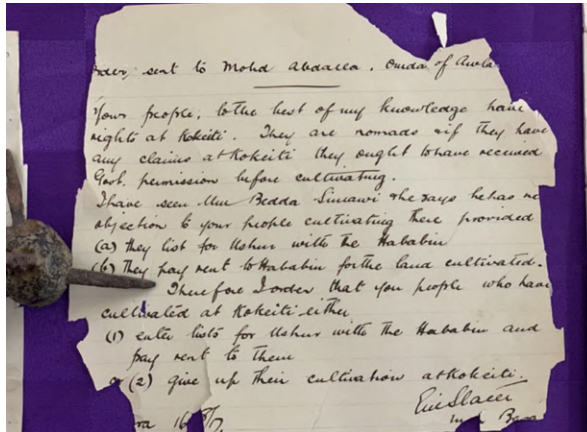 order sent to Mohd Abdalla. Omda of Awla
Your people, to the best of my knowledge have
rights at Kokeiti. They are nomads & if they have
any claims at Kokeiti they ought to have received
Govt. permission before cultivating.
I have seen Um Bedda Simawi & he says he has no
objection to your people cultivating there provided
(a) they list for Ushur with the Hababin
(b) they pay rent to Hababin for the land cultivated.
Therefore I order that you people who have
cultivated at Kokeiti either
(1) enter lists for Ushur with the Hababin and
pay rent to them
or (2) give up their cultivation at Kokeiti.
Bara